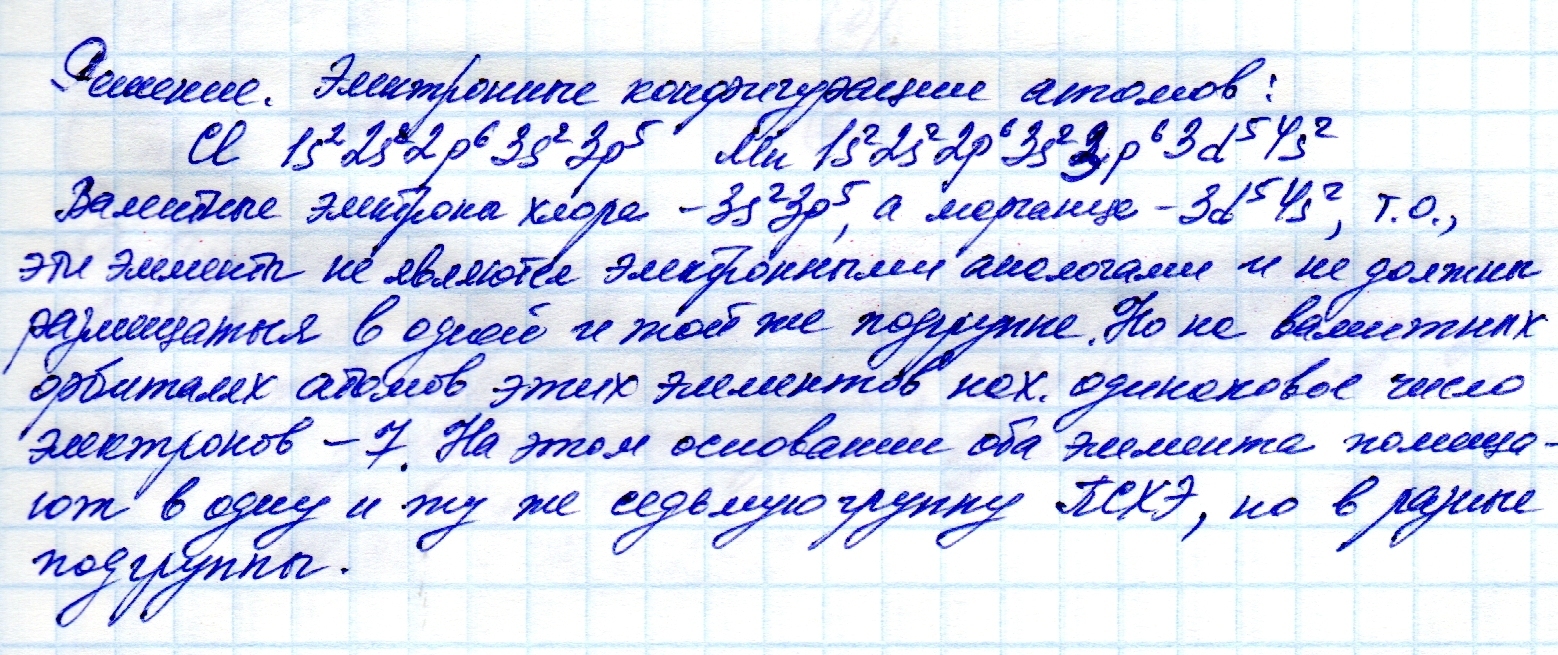 Решение. Электронные конфигурации атомов:
Cl 1s²2s²2p⁶3s²3p⁵ Mn 1s²2s²2p⁶3s²3p⁶3d⁵4s²
Валентные электроны хлора – 3s²3p⁵, а марганца – 3d⁵4s², т.о.,
эти элементы не являются электронными аналогами и не должны
размещаться в одной и той же подгруппе. Но на валентных
орбиталях атомов этих элементов нах. одинаковое число
электронов – 7. На этом основании оба элемента помеща-
ют в одну и ту же седьмую группу ПСХЭ, но в разные
подгруппы.